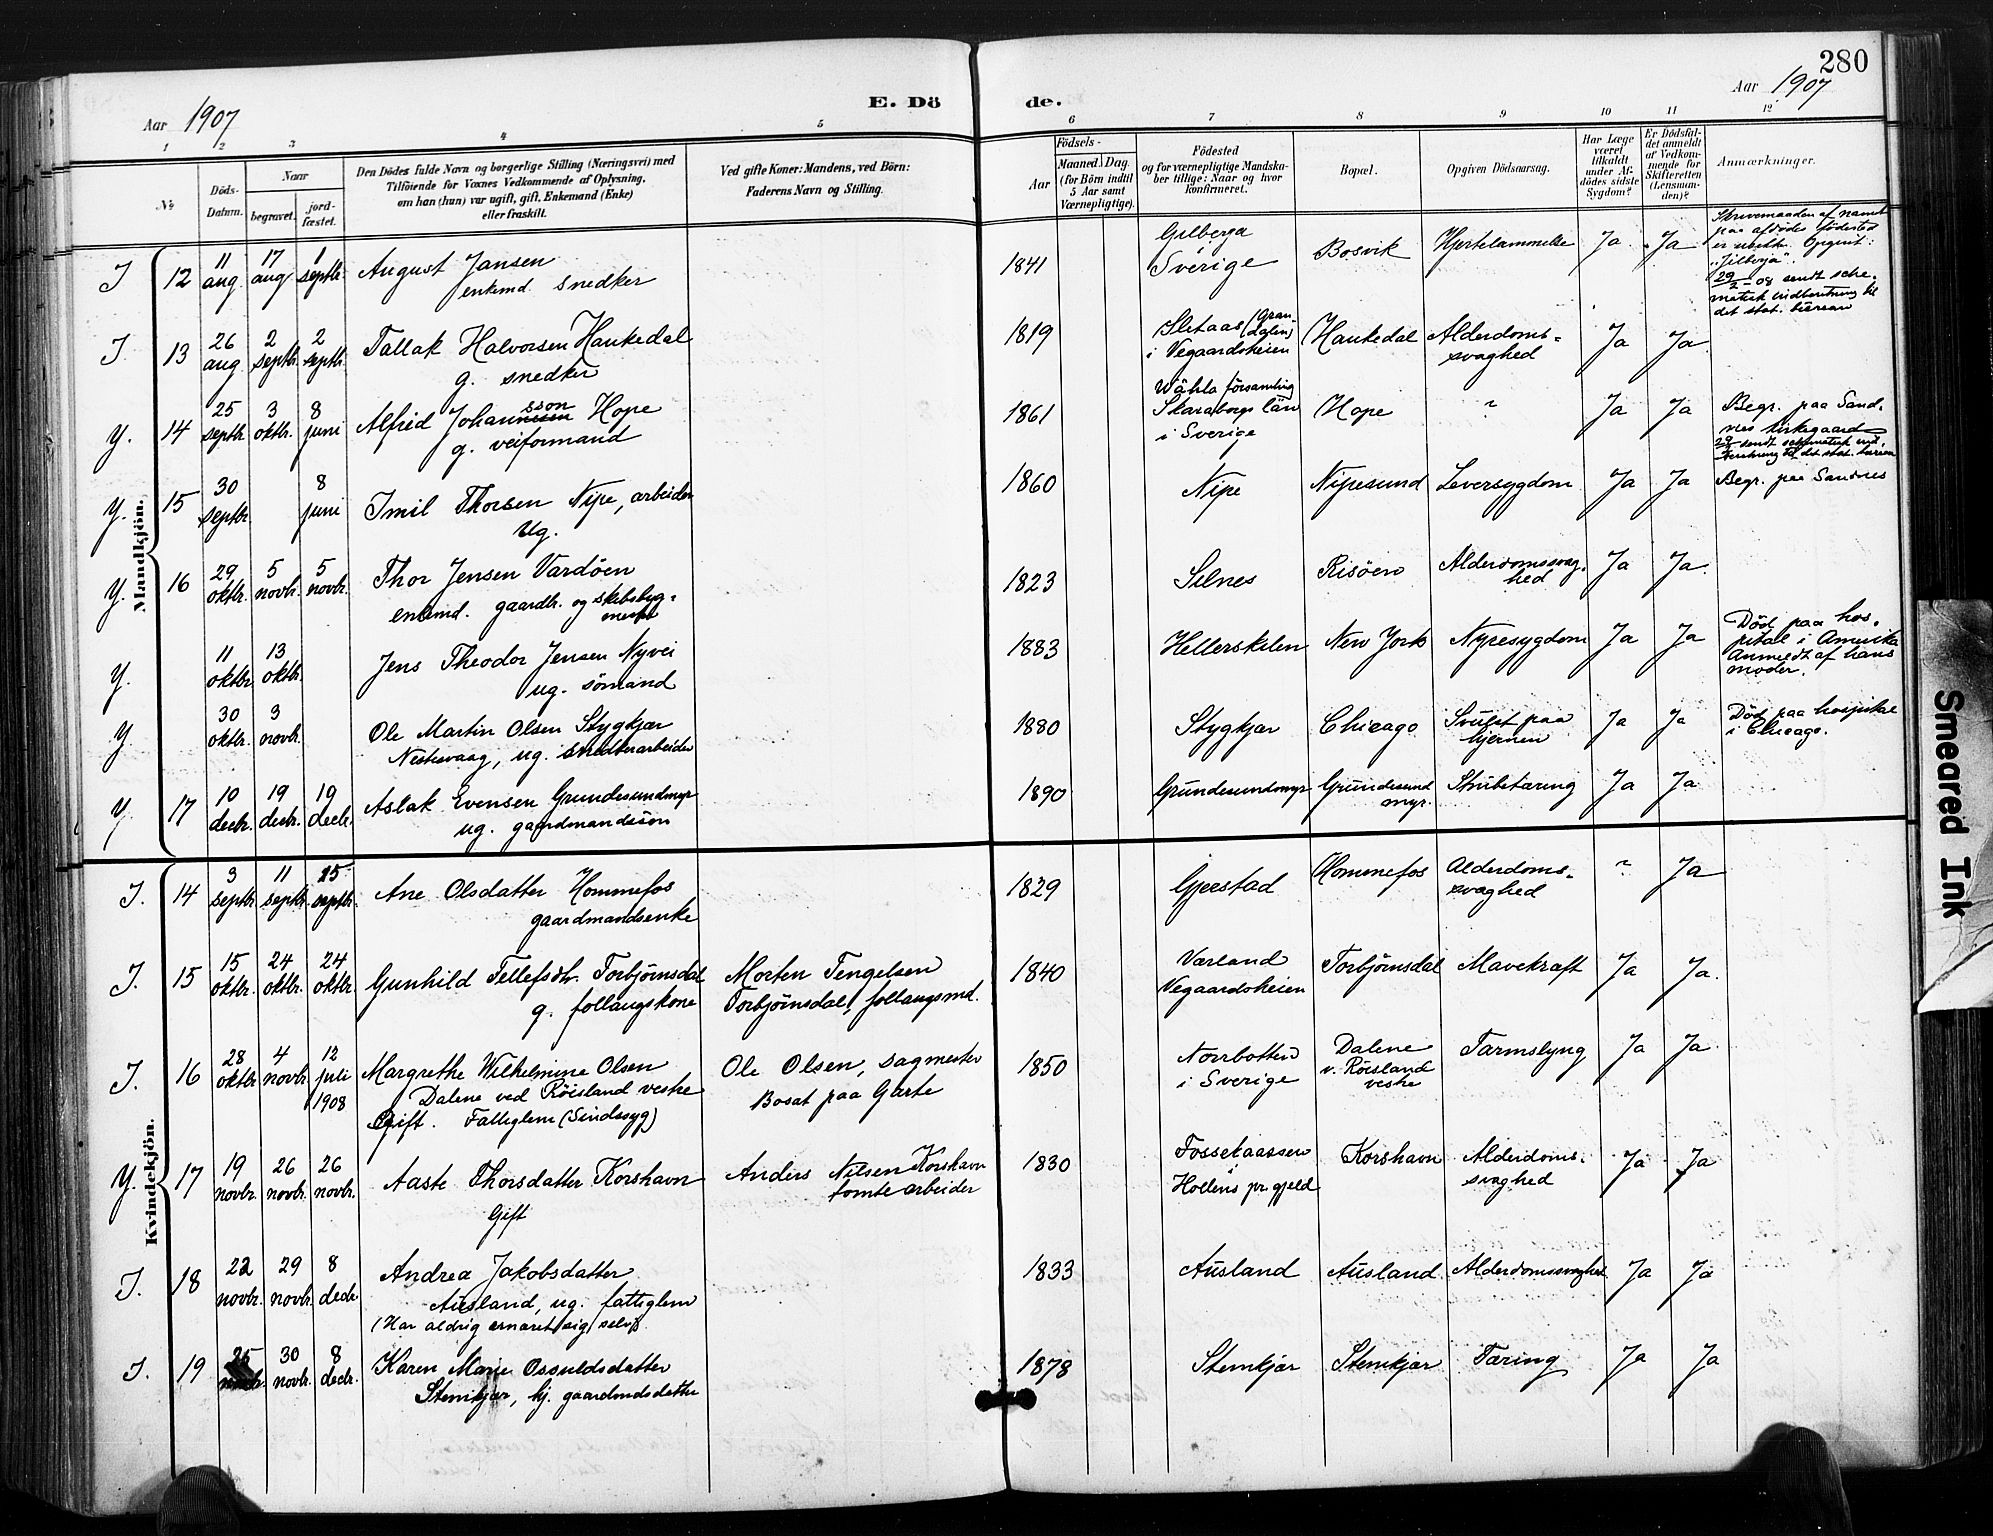 280
Aar 1907
E. Dö
de.
Aar 1907
1 2 3 4 5 6 7 8 9 10 11 12
No
Döds-
Datum.
Naar
begravet.
jord-
fæstet.
Den Dödes fulde Navn og borgerlige Stilling (Næringsvei) med
Tilföiende for Voxnes Vedkommende af Oplysning,
om han (hun) var ugift, gift, Enkemand (Enke)
eller fraskilt.
Ved gifte Koner: Mandens, ved Börn:
Faderens Navn og Stilling.
Födsels-
Aar
Maaned Dag
(for Börn indtil
5 Aar samt
Værnepligtige).
Födested
og for værnepligtige Mandska-
ber tillige: Naar og hvor
konfirmeret.
Bopæl.
Opgiven Dödsaarsag.
Har Læge
været
tilkaldt
under Af-
dödes sidste
Sygdom?
Er Dödsfal-
det anmeldt
af Vedkom-
mende for
Skifteretten
(Lensman-
den)?
Anmærkninger.
Mandkjön.
I 12 11 aug. 17 aug. 1 septbr. August Jansen
enkemd. snedker
1841 Gilberga
Sverige
Bosvik Hjertelammelse Ja Ja
Skrivemaaden af navnet
paa afdødes fødested
er ubekk. Opgivit:
"Jilberja".
29/2-08 sendt sche-
matisk indberetning til
det stat. büreau
I 13 26 aug 2 septbr. 2 septbr. Tallak Halvorsen Haukedal
g. snedker
1819 Sletaas (Gran-
dalen)
i Vegaardsheien
Haukedal Alderdoms-
svaghed Ja Ja
Y. 14 25 septbr. 3 oktbr. 8 juni Alfrid Johansson Hope
g. veiformand
1861 Wåhla församling
Skaraborgs län
i Sverige
Hope " Ja Ja
Begr. paa Sand-
nes kirkegaard
29/2 sendt schematisk ind-
beretning til det stat. büreau
Y. 15 30 septbr. 8 juni Imil Thorsen Nipe, arbeider
Ug.
1860 Nipe Nipesund Leversygdom Ja Ja Begr. paa Sandnes
Y. 16 29 oktbr. 5 novbr. 5 novbr. Thor Jensen Vardøen
enkemd. gaardbr. og skibsbyg-
mester
1823 Silnes Risøen Alderdomssvag-
hed Ja Ja.
Y. 11 oktbr. 13 oktbr. Jens Theodor Jensen Nyvei
ug. sömand
1883 Hellerskilen New York Nyresygdom Ja Ja
Død paa hos-
pital i Amerika
Anmeldt af hans
moder.
Y 30 oktbr. 3 novbr. Ole Martin Olsen Stygkjær
Nestesvaag, ug.
1880 Stygkjær Chicago Svulst paa
hjernen Ja Ja
Død paa hospital
i Chicago.
Y 17 10 decbr. 19 decbr. 19 decbr. Aslak Evensen Grundesundmyr
ug. gaardmandssön
1890 Grundesundmyr Grundesund
myr. Strubetæring Ja Ja
Kvindekjön.
I. 14 3 septbr. 11 septbr. 15 septbr. Ane Olsdatter Hommefos
gaardmandsenke
1829 Gjerstad Hommefos Alderdoms-
svaghed " Ja
I. 15 15 oktbr. 24 oktbr. 24 oktbr Gunhild Tellefsdtr. Torbjörnsdal
g. follaugskone
Morten Tengelsen
Torbjörnsdal, follaugsmd.
1840 Værland
Vegaardsheien
Torbjørnsdal Mavekræft Ja Ja.
I. 16 28 oktbr 4 novbr 12 juli 1908 Margrethe Wilhelmine Olsen
Dalene ved Röisland vestre
Gift. Fattiglem (Sindssyg)
Ole Olsen, sagmester
Bosat paa Garte
1850 Norrbotten
i Sverige
Dalene
v. Röisland
vestre
Tarmslyng Ja Ja.
Y. 17 19 novbr. 26 novbr. 26 novbr. Aaste Thorsdatter Korshavn
Gift
Anders Nilsen Korshavn
tomtearbeider
1830 Fossekaassen
Hollens pr.gjeld
Korshavn Alderdoms-
svaghed Ja Ja
I. 18 22 novbr. 29 novbr. 8 decbr Andrea Jakobsdatter
Ausland, ug. fattiglem
(Har aldrig ernæret sig selv).
1833 Ausland Ausland Alderdomssvaghed Ja Ja
I. 19 25 30 novbr. 8 decbr. Karen Marie Osuldsdatter
Stemkjær, hj. gaardmdsdatter
1878 Stemkjær Stemkjær Tæring Ja Ja
Smeared Ink